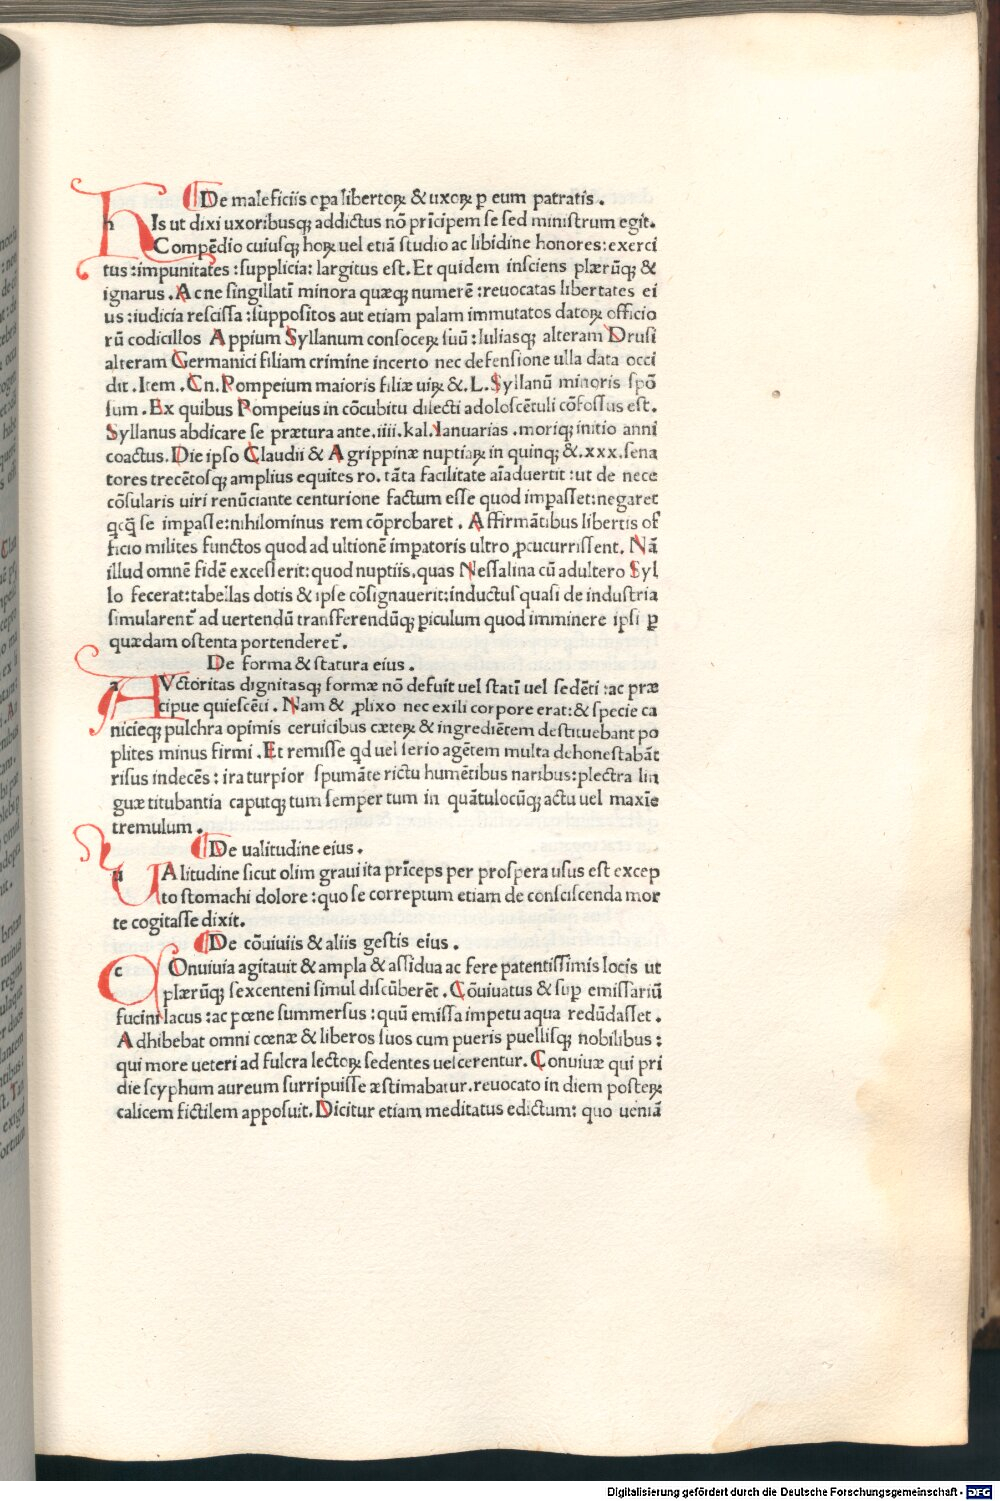 De maleficiis opa libertoꝝ & uxoꝝ ꝑ eum patratis.
hIs ut dixi uxoribusqꝫ addictus nō prīcipem se sed ministrum egit.
Compēdio cuiusqꝫ hoꝝ uel etiā studio ac libidine honores: exerci
tus: impunitates: supplicia: largitus est. Et quidem insciens plærūqꝫ &
ignarus. Ac ne singillatī minora quæqꝫ numerē: reuocatas libertates ei
us: iudicia rescissa: suppositos aut etiam palam immutatos datoꝝ officio
rū codicillos Appium Syllanum consoceꝝ suū: Iuliasqꝫ alteram Drusi
alteram Germanici filiam crimine incerto nec defensione ulla data occi
dit. Item. Cn. Pompeium maioris filiæ uiꝝ &. L. Syllanū minoris spō
sum. Ex quibus Pompeius in cōcubitu dilecti adoloscētuli cōfossus est.
Syllanus abdicare se prætura ante. iiii. kal. Ianuarias. moriqꝫ initio anni
coactus. Die ipso Claudii & Agrippinæ nuptiaꝝ in quinqꝫ &. xxx. sena
tores trecētosqꝫ amplius equites ro. tāta facilitate aīaduertit: ut de nece
cōsularis uiri renūciante centurione factum esse quod impasset: negaret
qcq̄ se impasse: nihilominus rem cōprobaret. Affirmātibus libertis of
ficio milites functos quod ad ultionē impatoris ultro ꝓcucurrissent. Nā
illud omnē fidē excesserit: quod nuptiis. quas Nessalina cū adultero Syl
lo fecerat: tabellas dotis & ipse cōsignauerit: inductus quasi de industria
simularent̄ ad uertendū transferendūqꝫ piculum quod imminere ipsi ꝑ
quædam ostenta portenderet̄.
De forma & statura eius.
aVctoritas dignitasqꝫ formæ nō defuit uel statī uel sedēti: ac præ
cipue quiescēti. Nam & ꝓlixo nec exili corpore erat: & specie ca
nicieqꝫ pulchra opimis ceruicibus cæteꝝ & ingrediētem destituebant po
plites minus firmi. Et remisse qd uel serio agētem multa dehonestabāt
risus indecēs: ira turpior spumāte rictu humētibus naribus: plectra lin
guæ titubantia caputqꝫ tum semper tum in quātulocūqꝫ actu uel maxīe
tremulum.
De ualitudine eius.
uAlitudine sicut olim graui ita prīceps per prospera usus est excep
to stomachi dolore: quo se correptum etiam de consciscenda mor
te cogitasse dixit.
De cōuiuiis & aliis gestis eius.
cOnuiuia agitauit & ampla & assidua ac fere patentissimis locis ut
plærūqꝫ sexcenteni simul discūberēt. Cōuiuatus & sup emissariū
fucini lacus: ac pœne summersus: quū emissa impetu aqua redūdasset.
Adhibebat omni cœnæ & liberos suos cum pueris puellisqꝫ nobilibus:
qui more ueteri ad fulcra lectoꝝ sedentes uescerentur. Conuiuæ qui pri
die scyphum aureum surripuisse æstimabatur. reuocato in diem posteꝝ
calicem fictilem apposuit. Dicitur etiam meditatus edictum: quo ueniā
Digitalisierung gefördert durch die Deutsche Forschungsgemeinschaft - DFG